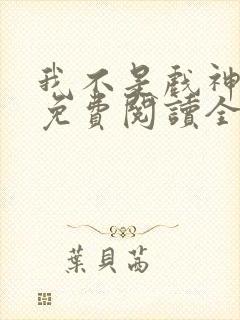 我不是戲神
免費閱讀全
葉貝茜